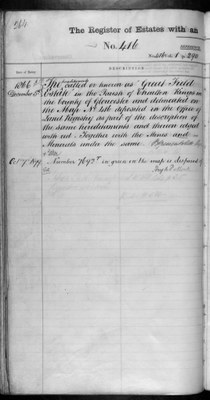 264
The Register of Estates with an
No. 416
DESCRIPTION
Date of Entry
1866
December
The hereditaments
called or known as "Great Field
Estate" in the Parish of Charlton Kings in
the County of Gloucester and delineated on
the Map No. 416 deposited in the Office of
Land Registry as part of the description of
the same hereditaments and therein edged
with red. Together with the Mines and
Minerals under the same.
Number 769 in green on the map is disposed of